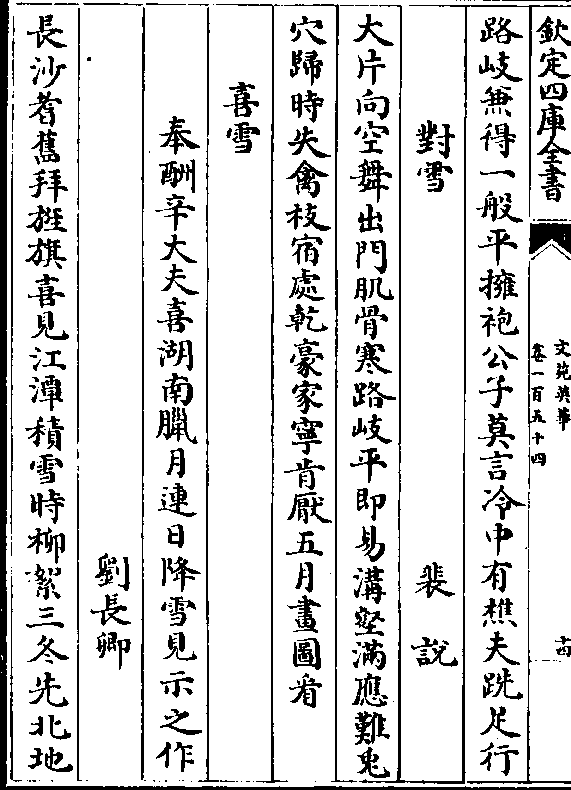 欽定四庫全書
文苑英華
卷一百五十四
十四
路岐兼得一般平擁袍公子莫言冷中有樵夫跣足行
對雪
裴說
大片向空舞出門肌骨寒路岐平即易溝壑滿應難兎
穴歸時失禽枝宿處乾豪家寧肯厭五月畫圖看
喜雪
奉酬辛大夫喜湖南臘月連日降雪見示之作
劉長卿
長沙耆舊拜旌旗喜見江潭積雪時柳絮三冬先北地